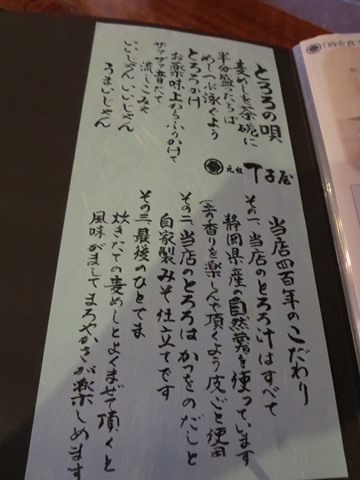 とろろの唄
麦めしを茶碗に
半分盛ったらば
めしつぶ泳ぐよう
とろろかけ
お薬味上からふりかけて
ザラザラ音たて
流しこみゃ
いいじゃんいいじゃん
うまいじゃん
元祖 丁子屋
当店四百年のこだわり
その一、当店のとろろ汁はすべて
静岡県産の自然薯を使っています
(香りを楽しんで頂くよう皮ごと使用
その二、当店のとろろはかつをのだしと
自家製みそ仕立てです
その三、最後のひとてま
炊きたての麦めしとよくまぜて頂くと
風味がましてまろやかさが楽しめます